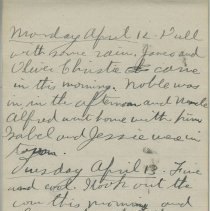 Monday April 12. Dull
with some rain. James and
Oliver Christie came
in this morning. Noble was
in in the afternoon and Uncle
Alfred went home with him
Isabel and Jessie was in
town.
Tuesday April 13. Fine
and cool. I took out the
cow this morning and